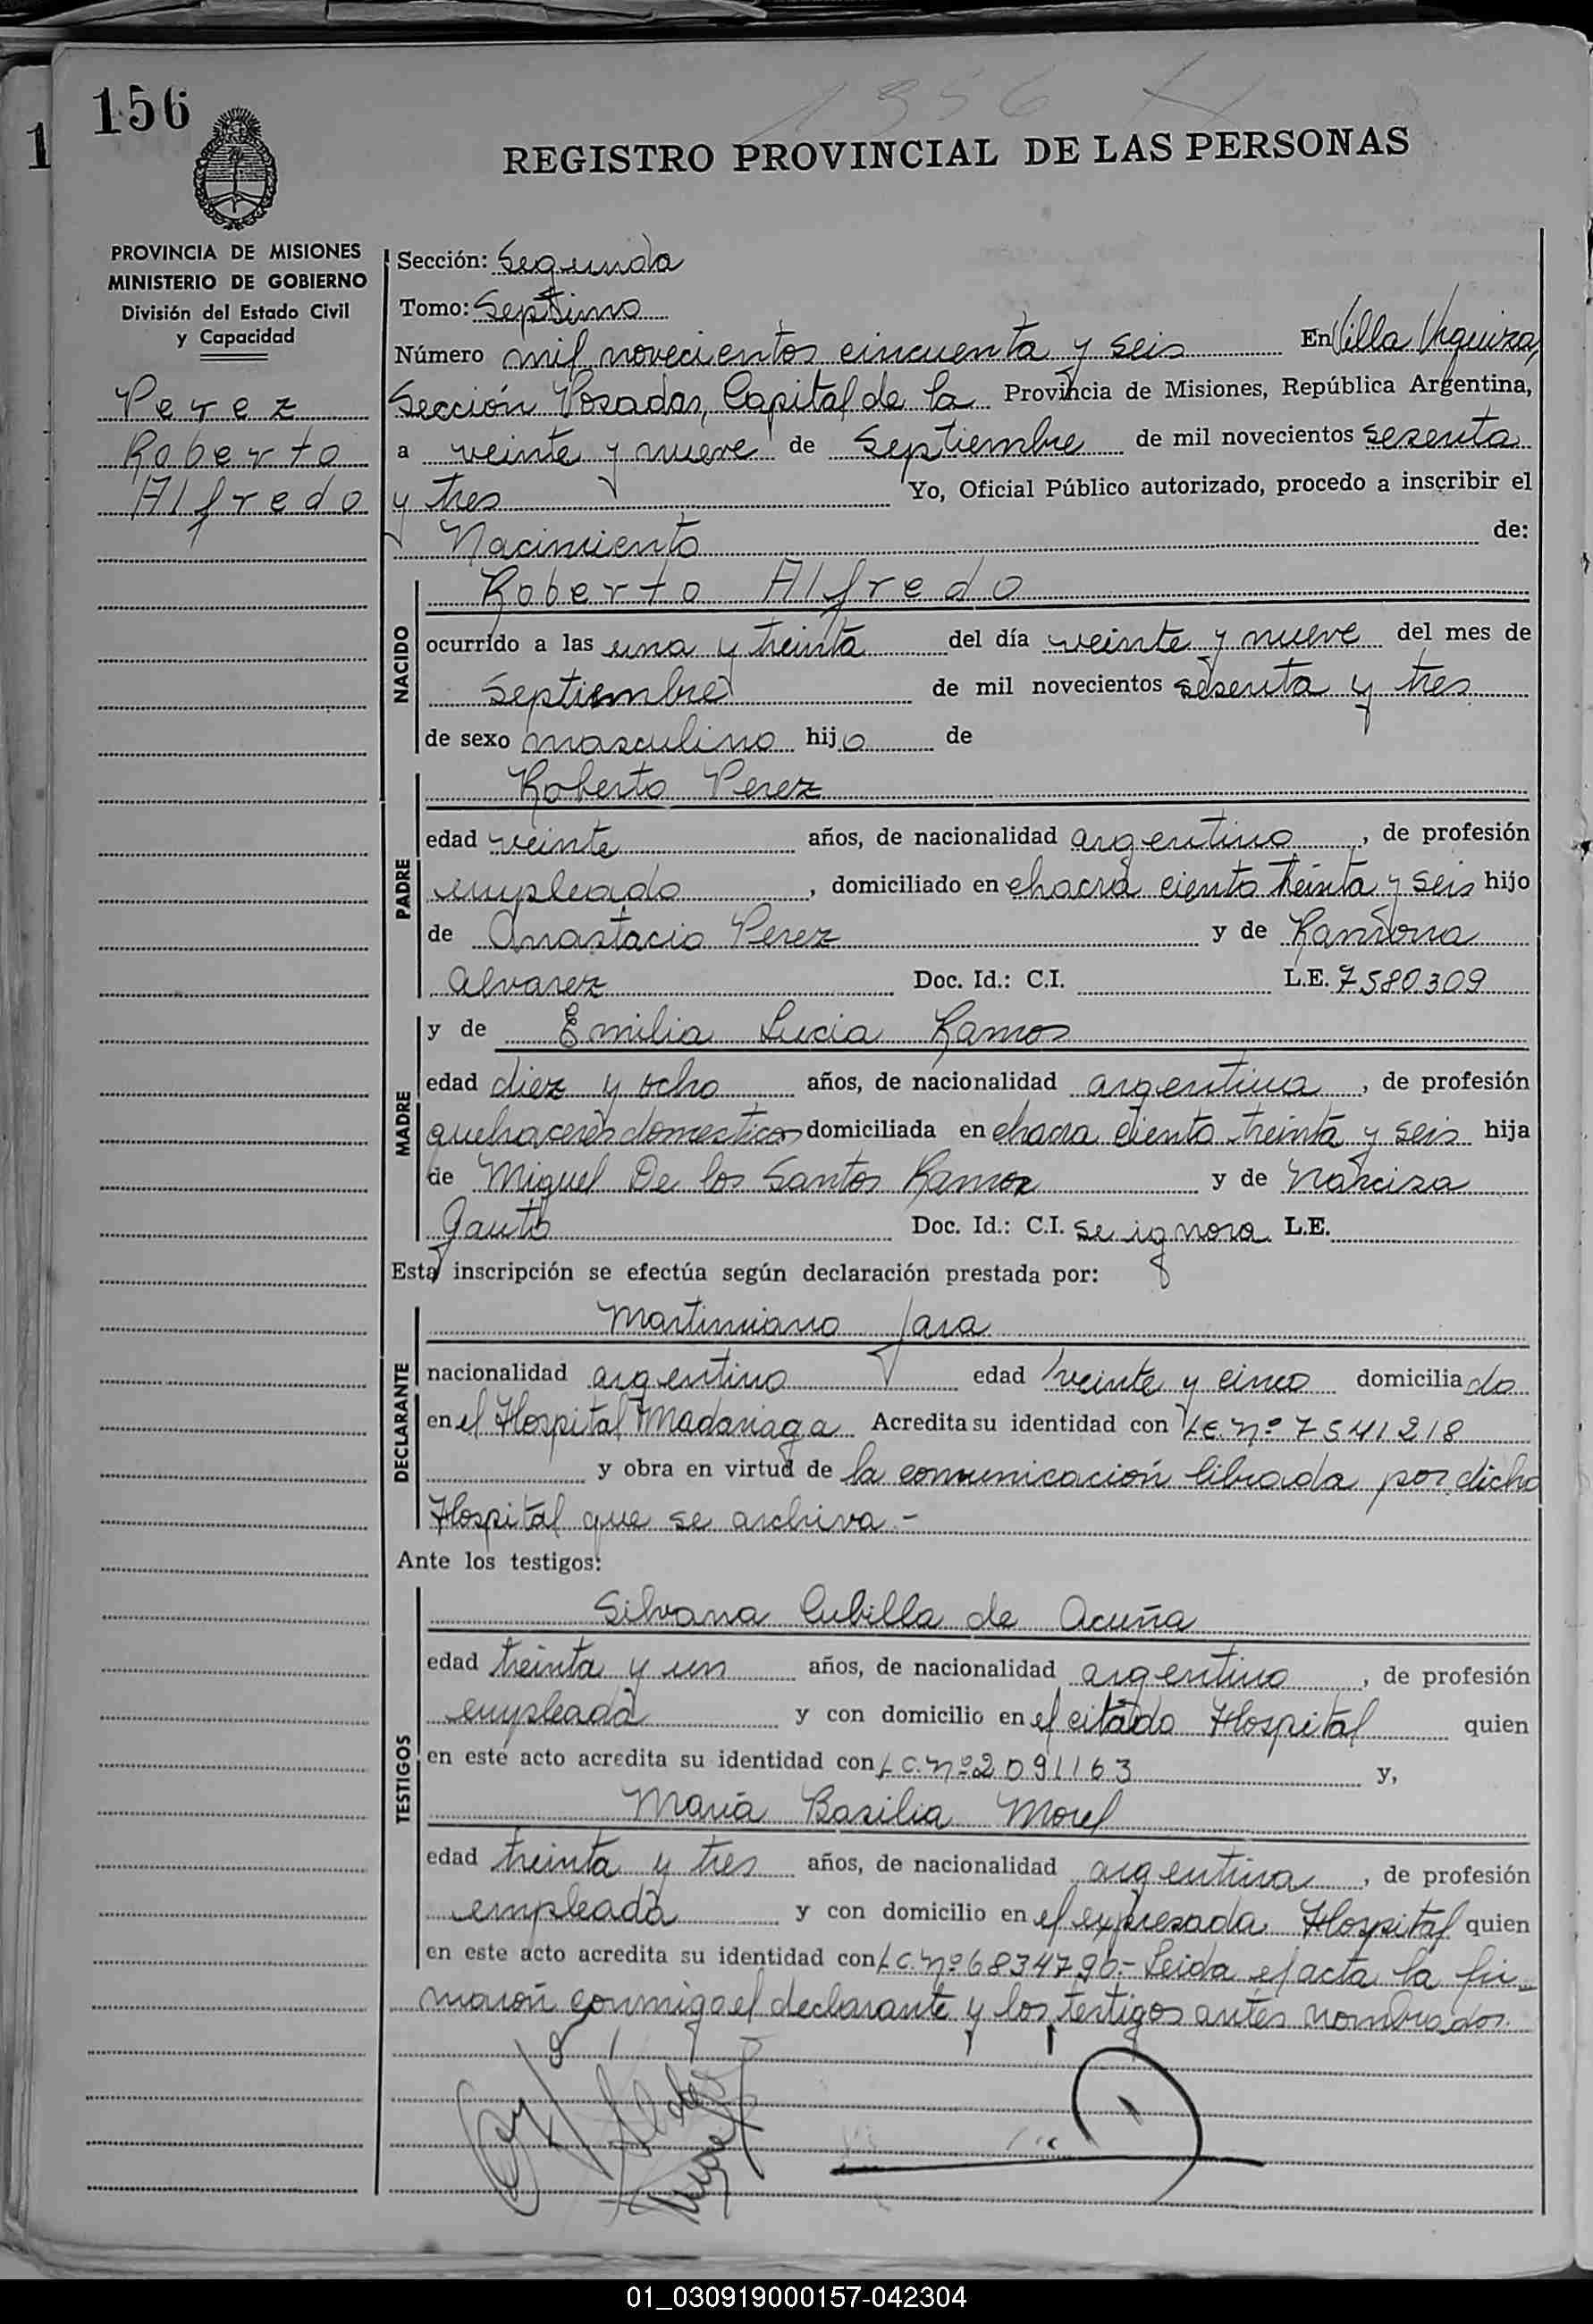 156
1956
REGISTRO PROVINCIAL DE LAS PERSONAS
1
PROVINCIA DE MISIONES
MINISTERIO DE GOBIERNO
División del Estado Civil
y Capacidad
Perez
Roberto
Alfredo
Sección: Segunda
Tomo: Septimo
Número mil novecientos cincuenta y seis En Villa Urquiza,
Sección Posadas, Capital de la Provincia de Misiones, República Argentina,
a veinte y nueve de Septiembre de mil novecientos sesenta
y tres Yo, Oficial Público autorizado, procedo a inscribir el
Nacimiento de:
NACIDO
Roberto Alfredo
ocurrido a las una y treinta del día veinte y nueve del mes de
Septiembre de mil novecientos sesenta y tres
de sexo masculino hijo de
PADRE
Roberto Perez
edad veinte años, de nacionalidad argentino, de profesión
empleado, domiciliado en chacra ciento treinta y seis hijo
de Anastacio Perez y de Ramona
Alvarez Doc. Id.: C.I. L.E. 7580309
MADRE
y de Emilia Lucia Ramos
edad diez y ocho años, de nacionalidad argentina, de profesión
quehaceres domesticos domiciliada en chacra ciento treinta y seis hija
de Miguel De los Santos Ramos y de Narcisa
Gauto Doc. Id.: C.I. se ignora L.E.
Esta inscripción se efectúa según declaración prestada por:
DECLARANTE
Martimiano Jara
nacionalidad argentino edad veinte y cinco domiciliado
en el Hospital Madariaga Acredita su identidad con L.E. nº 7541218
y obra en virtud de la comunicación librada por dicho
Hospital que se archiva.-
Ante los testigos:
TESTIGOS
Silvana Cubilla de Acuña
edad treinta y un años, de nacionalidad argentino, de profesión
empleada y con domicilio en el citado Hospital quien
en este acto acredita su identidad con L.C. nº 2091163 y,
María Basilia Morel
edad treinta y tres años, de nacionalidad argentina, de profesión
empleada y con domicilio en el expresada Hospital quien
en este acto acredita su identidad con L.C. nº 6834796.- Leida el acta la fir_
marón conmigo el declarante y los testigos antes nombrados.
01_030919000157-042304